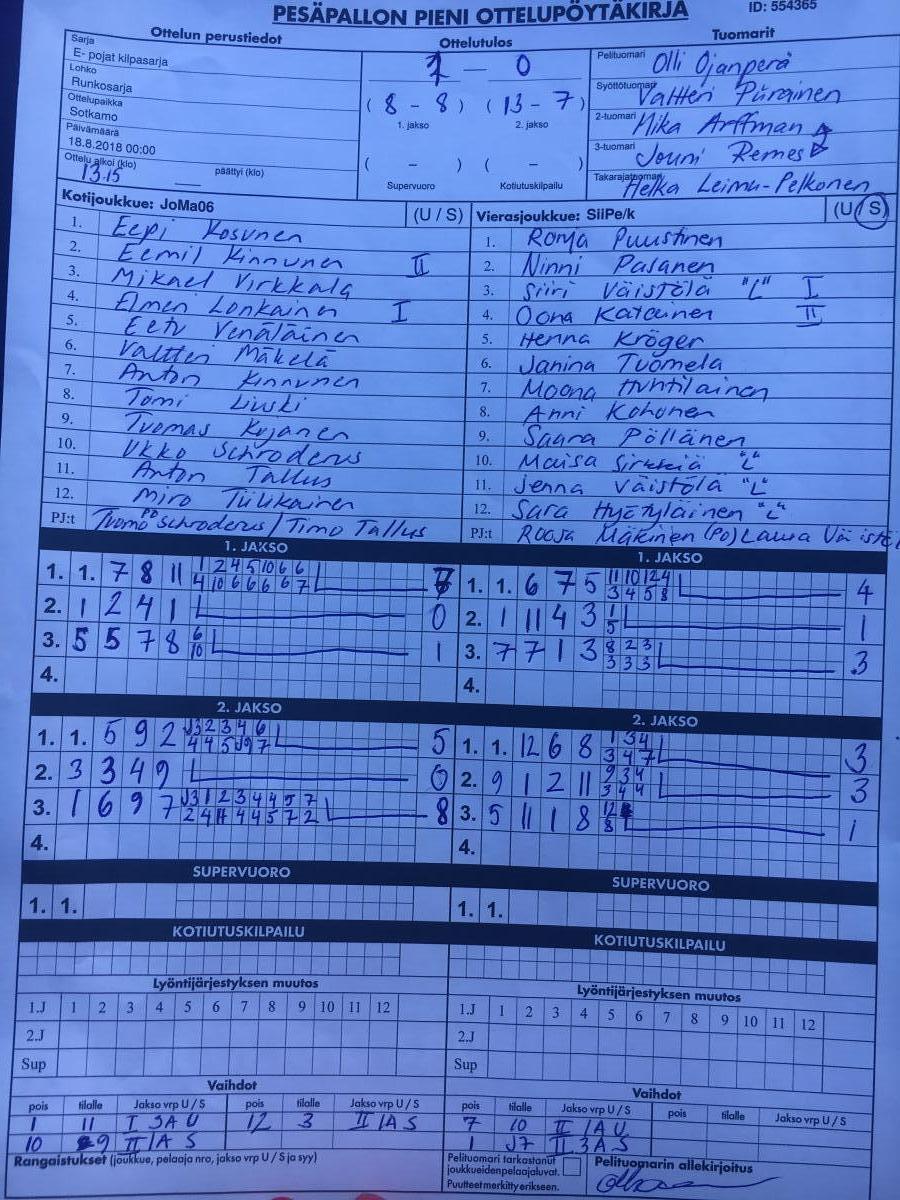 PESÄPALLON PIENI OTTELUPÖYTÄKIRJA
ID: 554365
Ottelun perustiedot
Sarja
E- pojat kilpasarja
Lohko
Runkosarja
Ottelupaikka
Sotkamo
Päivämäärä
18.8.2018 00:00
Ottelu alkoi (klo) päättyi (klo)
13.15
Ottelutulos
1 — 0
( 8 - 8 ) ( 13 - 7 )
1. jakso 2. jakso
( - ) ( - )
Supervuoro Kotiutuskilpailu
Tuomarit
Pelituomari Olli Ojanperä
Syöttötuomari Valtteri Piirainen
2-tuomari Mika Arffman
3-tuomari Jouni Remes
Takarajatuomari Helka Leimu-Pelkonen
Kotijoukkue: JoMa06 (U / S)
1. Eepi Kosunen
2. Eemil Kinnunen II
3. Mikael Virkkala
4. Elmeri Lonkainen I
5. Eetu Venäläinen
6. Valtteri Mäkelä
7. Anton Kinnunen
8. Tomi Liuski
9. Tuomas Kujanen
10. Ukko Schroderus
11. Anton Tallus
12. Miro Tiilikainen
PJ:t Tuomo PO Schroderus / Timo Tallus
Vierasjoukkue: SiiPe/k (U / S)
1. Ronja Puustinen
2. Ninni Pasanen
3. Siiri Väistölä "L" I
4. Oona Katainen II
5. Henna Kröger
6. Janina Tuomela
7. Moona Huhtilainen
8. Anni Kohonen
9. Saara Pöllänen
10. Maisa Sirkkiä "L"
11. Jenna Väistölä "L"
12. Sara Hyetyläinen "L"
PJ:t Roosa Mäkinen (PO) Laura Väistölä
1. JAKSO
1. 1. 7 8 11 1 2 4 5 10 6 6 7
4 10 6 6 6 6 7
2. 1 2 4 1 0
3. 5 5 7 8 6 1
10
4.
1. JAKSO
1. 1. 6 7 5 11 10 12 4 4
3 4 5 8
2. 1 11 4 3 1 1
5
3. 7 7 1 3 8 2 3 3
3 3 3
4.
2. JAKSO
1. 1. 5 9 2 J3 2 3 4 6 5
4 4 5 J9 7
2. 3 3 4 9 0
3. 1 6 9 7 J3 1 2 3 4 4 5 7 8
2 4 11 4 4 5 7 2
4.
2. JAKSO
1. 1. 12 6 8 1 3 4 3
3 4 7
2. 9 1 2 11 9 3 4 3
3 4 4
3. 5 11 1 8 12 1
8
4.
SUPERVUORO
1. 1.
SUPERVUORO
1. 1.
KOTIUTUSKILPAILU
KOTIUTUSKILPAILU
Lyöntijärjestyksen muutos
1.J 1 2 3 4 5 6 7 8 9 10 11 12
2.J
Sup
Lyöntijärjestyksen muutos
1.J 1 2 3 4 5 6 7 8 9 10 11 12
2.J
Sup
Vaihdot
pois tilalle Jakso vrp U / S pois tilalle Jakso vrp U / S
1 11 I 3A U 12 3 II 1A S
10 9 II 1A S
Vaihdot
pois tilalle Jakso vrp U / S pois tilalle Jakso vrp U / S
7 10 II 1A U
1 J7 II 3A S
Rangaistukset (joukkue, pelaaja nro, jakso vrp U / S ja syy)
Pelituomari tarkastanut
joukkueiden pelaajaluvat.
Puutteet merkitty erikseen.
Pelituomarin allekirjoitus